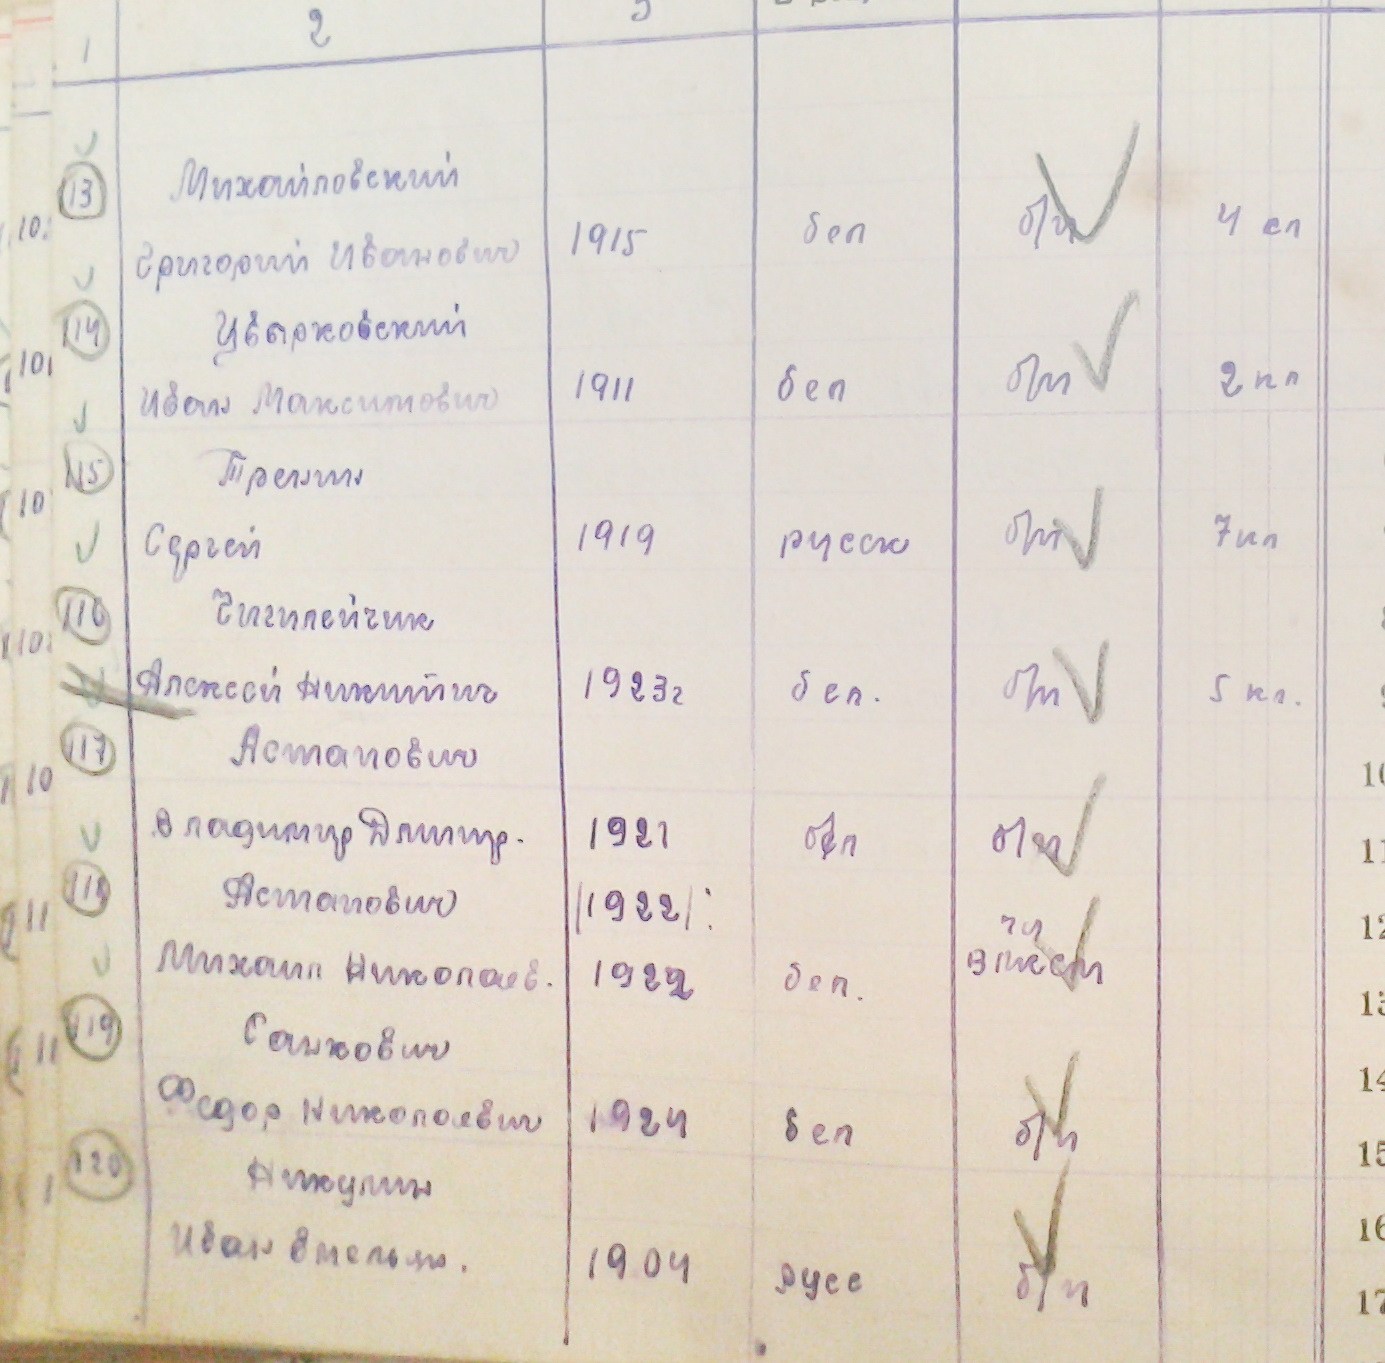 1 2 3
Михайловский
13 Григорий Иванович 1915 бел б/п 4 кл
Цвырковский
114 Иван Максимович 1911 бел б/п 2 кл
Тренин
115 Сергей 1919 русск б/п 7 кл
Чигилейчик
116 Алексей Никитич 1923г бел. б/п 5 кл.
Астапович
117 Владимир Дмитр. 1921 бел б/п
Астапович /1922/: чл
118 Михаил Николаев. 1922 бел. ВЛКСМ
Санкович
119 Федор Николаевич 1924 бел б/п
Никулин
120 Иван Емельян. 1904 русс б/п
10
11
12
13
14
15
16
17